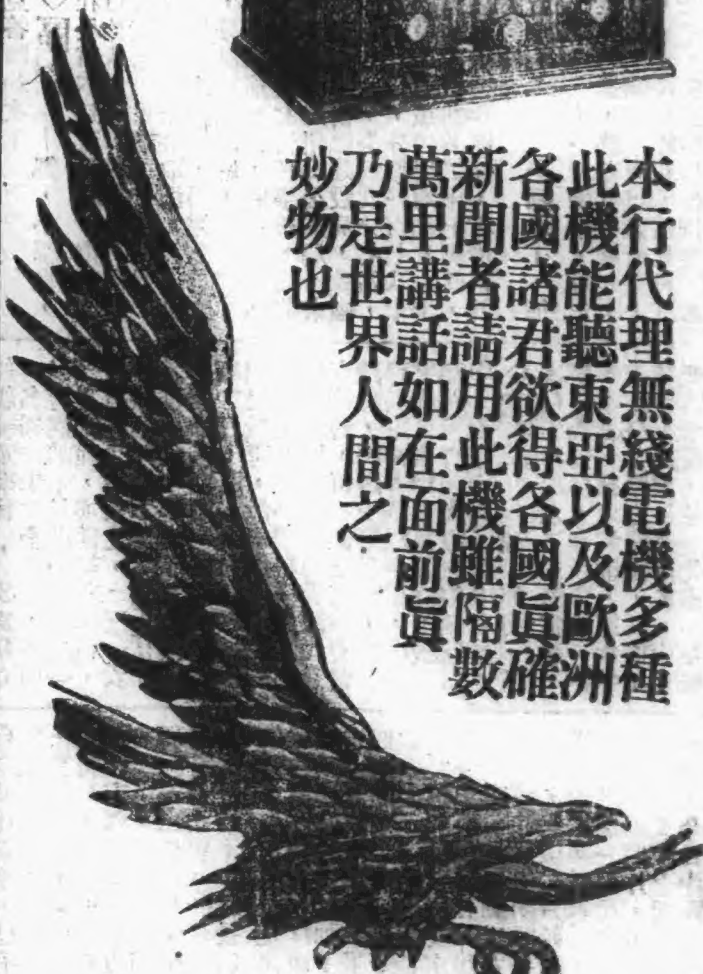 本行代理無綫電機多種
此機能聽東亞以及歐洲
各國諸君欲得各國眞確
新聞者請用此機雖隔數
萬里講話如在面前眞
乃是世界人間之
妙物也